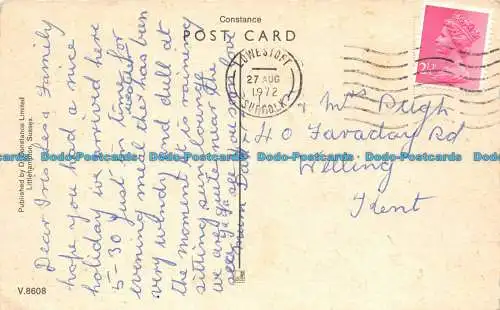 Constance
POST CARD
LOWESTOFT
27 AUG
1972
SUFFOLK
2½P
Dear Iris and Family
hope you had a nice
holiday ive arrived here
5-30 just in time for
evening meal the has been
very windy and dull at
the moment it is raining
sitting sun lounge
we are quite near the
sea see you soon love
Mrs Pugh
40 Faraday Rd
Welling
Kent
Published by D. Constance Limited
Littlehampton, Sussex.
V.8608
Dodo-Postcards Dodo-Postcards Dodo-Postcards Dodo-Postcards Dodo-Postcards